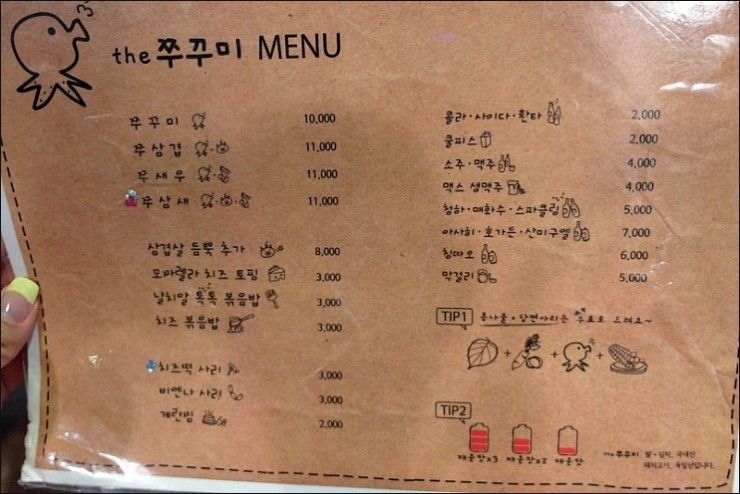 the 쭈꾸미 MENU
쭈꾸미 10,000
쭈삼겹 11,000
쭈새우 11,000
쭈삼새 11,000
삼겹살 듬뿍 추가 8,000
모짜렐라 치즈 토핑 3,000
날치알 톡톡 볶음밥 3,000
치즈 볶음밥 3,000
치즈떡 사리 3,000
비엔나 사리 3,000
계란찜 2,000
콜라·사이다·환타 2,000
쿨피스 2,000
소주·맥주 4,000
맥스 생맥주 4,000
청하·매화수·스파클링 5,000
아사히·호가든·산미구엘 7,000
칭따오 6,000
막걸리 5,000
TIP1 콩나물·당면사리는 무료로 드려요~
TIP2
매운맛x3 매운맛x2 매운맛
the쭈꾸미 쌀·김치, 국내산
돼지고기, 독일산입니다.